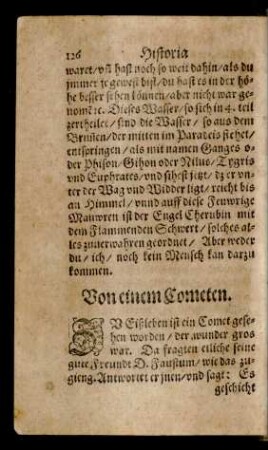 126 Historia
waret / vñ hast noch so weit dahin / als du
jmmer je gewest bist / du hast es in der hö-
he besser sehen können / aber nicht war ge-
nomẽ ꝛc. Dieses Wasser / so sich in 4. teil
zertheilet / sind die Wasser / so aus dem
Brunnen / der mitten im Paradeis stehet /
entspringen / als mit namen Ganges o-
der Phison / Gihon oder Nilus / Tygris
vnd Euphrates / vnd sihest jetzt / dz er vn-
ter der Wag vnd Widder ligt / reicht bis
an Himmel / vnnd auff diese Fewrige
Mawren ist der Engel Cherubin mit
dem Flammenden Schwert / solches al-
les zuuerwahren geordnet / Aber weder
du / ich / noch kein Mensch kan darzu
kommen.
Von einem Cometen.
ZV Eißleben ist ein Comet gese-
hen worden / der wunder gros
war. Da fragten etliche seine
gute Freundt D. Faustum / wie das zu-
gieng. Antwortet er jnen / vnd sagt: Es
geschicht